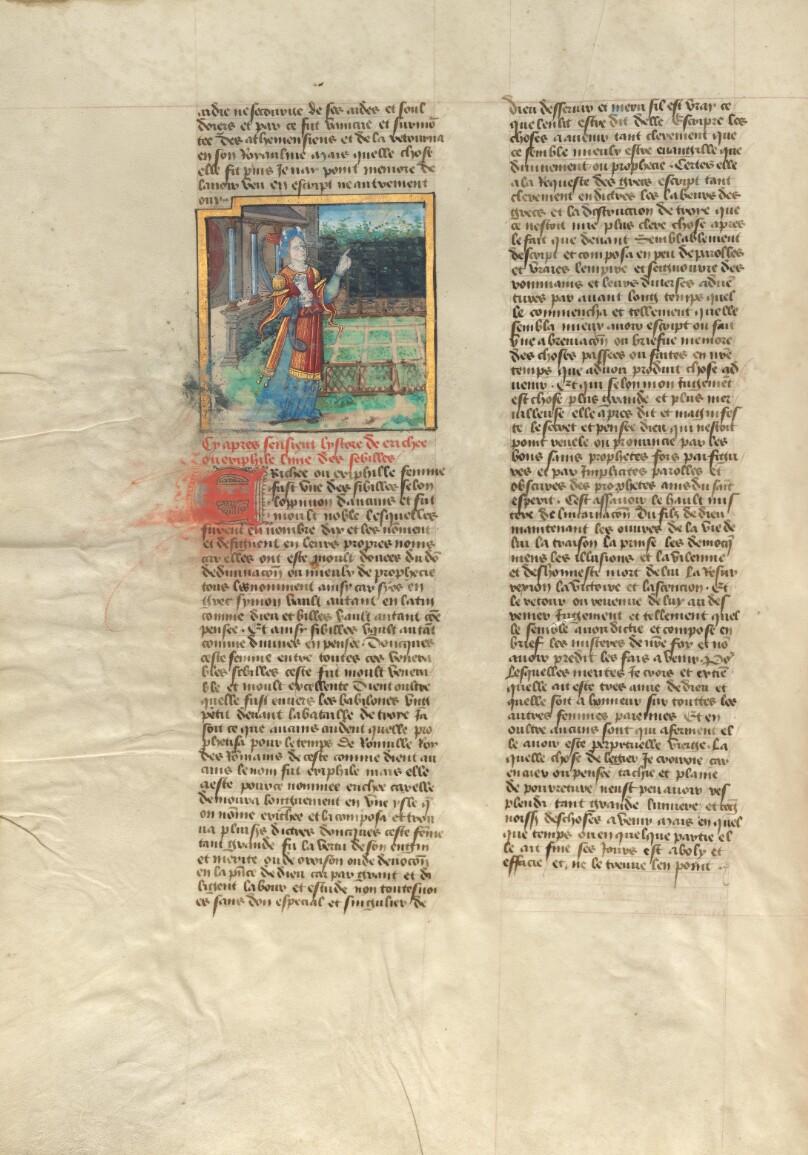 aidie ne secourue de ses aides et soul
doiers et par ce fut vaincue et surmo
tee des atheniensiens et de la retourna
en son royaulme mais quelle chose
elle fit puis Je nay point memoire de
lauoir veu en escript ne autrement
ouy
Cy apres sensieut lystore de erichee
ou eriphile lune des sebilles
Erichee ou eriphille femme
fust vne des sibilles selon
loppinion daucuns et fut
moult noble lesquelles
furent en nombre dix et les nōment
et designent en leurs propres noms
car elles ont este moult douees du dō
de diuinacōn ou mieulx de prophecie
tous les nomment ainsy car syos en
grec symon vault autant en latin
comme dieu et billes vault autant cōe
pensee Et ainsy sibilles vault autāt
comme diuines en pensee Doncques
ceste femme entre toutes ces venera
bles sebilles ceste fut moult venera
ble et moult excellente Dient oultre
quelle fust enuers les babilones vng
petit deuant la bataille de troye Ja
soit ce que aucuns cuident quelle pro
phetisa pour le temps de Romulle Roy
des Romains de ceste comme dient au
cuns le nom fut eriphile mais elle
a este pource nommee erichee car elle
demoura longuement en vne ysle q̄
on nōme erichee et la composa et trou
ua plusrs dictees doncques ceste fēme
tant grande fu la vertu de son engin
et merite ou de oroison ou de deuocōn
en la pn̄ce de dieu car par grant et di
ligent labour et estude non toutesuoi
es sans don especial et singulier de
dieu desseruir et mera sil est vray ce
que len lit estre dit delle Escripre les
choses a auenir tant clerement que
ce semble mieulx estre euangille que
diuinement ou prophecie Certes elle
a la Requeste des grecs escript tant
clerement en dictees les labeurs des
grecs et la destruction de troye que
ce nestoit mie plus clere chose apres
le fait que deuant Semblablement
descript et composa en peu de parolles
et vraies lempire et seignourie des
rommains et leurs diuerses aduē
tures par auant long temps quel
le commencha et tellement quelle
sembla mieux auoir escript ou fait
vne abreuiacōn ou briefue memore
des choses passees ou faites en nr̄e
temps que auoir produit chose ad
uenir Et qui selon mon Jugemēt
est chose plus grande et plus mer
uilleuse elle apres dit et magnifes
te le secret et pensee dieu qui nestoit
point reuele ou pronuncie par les
bons sains prophetes fors par figu
res et par Implicites parolles et
obscures des prophetes amis du sait
esperit Cest assauoir le hault mis
tere de lincarnacōn du filz de dieu
maintenant les ouures de la vie de
lui la traison la prinse les democq̄
mens les illusions et la vilennie
et deshonneste mort de lui la Resur
rexion la victoire et lascencion Et
le retour ou reuenue de luy au der
renier Jugement et tellement quel
le semble auoir dictie et compose en
brief les misteres de nr̄e foy et nō
auoir predit les fais a venir
Lesquelles merites Je crois et extīe
quelle ait este tres amie de dieu et
quelle soit a honneur sur touttes les
autres femmes paiennes Et en
oultre aucuns sont qui afferment el
le auoir este perpetuelle virge La
quelle chose de legier Je croiroie car
en cuer ou pensee tachie et plaine
de pourreture neust peu auoir res
plendi tant grande lumiere et cog
noiss des choses a venir Mais en quel
que temps ou en quelque partie el
le ait fine ses Jours est aboly et
effacie et ne le treuue len point